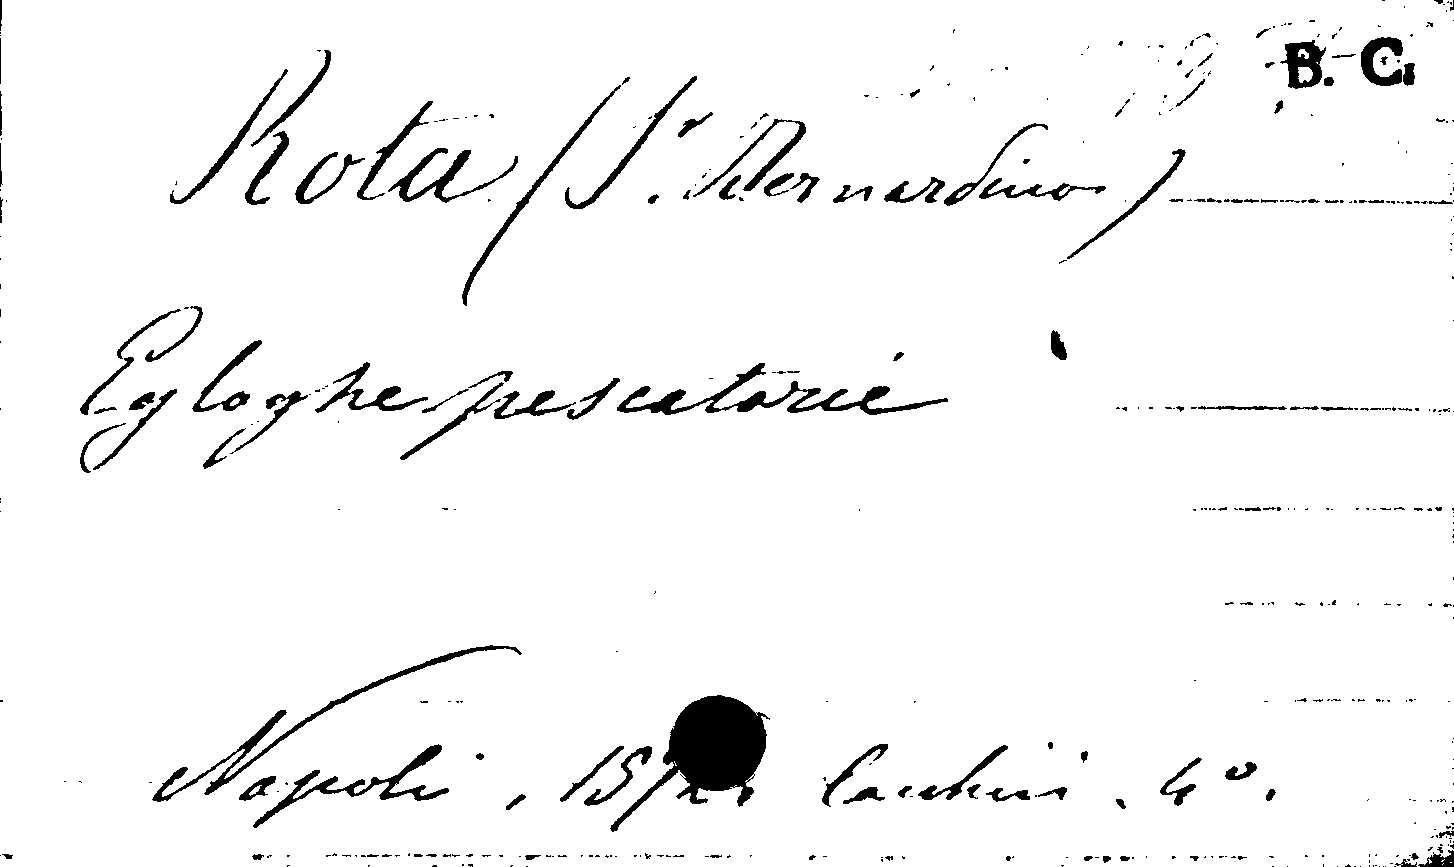 B. C.
Rota (S.r Bernardino)
Egloghe pescatorie
Napoli, 1572. Cacchii. 4º.